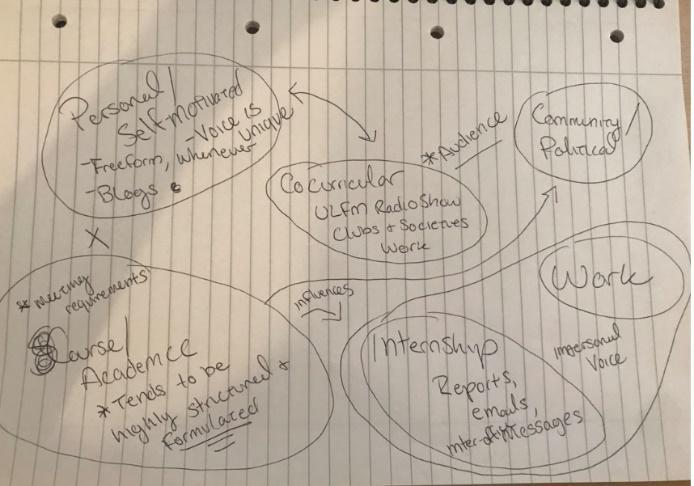 Personal/
Self-motivated
-Voice is
unique
-Freeform, whenever
-Blogs
*Audience
Community/
Political
Cocurricular
ULFM Radio Show
Clubs & Societies
Work
X
*Meeting
requirements
Course/
Academic
*Tends to be
highly structured &
Formulated
influences
Work
Impersonal
Voice
Internship
Reports,
emails,
inter-office messages